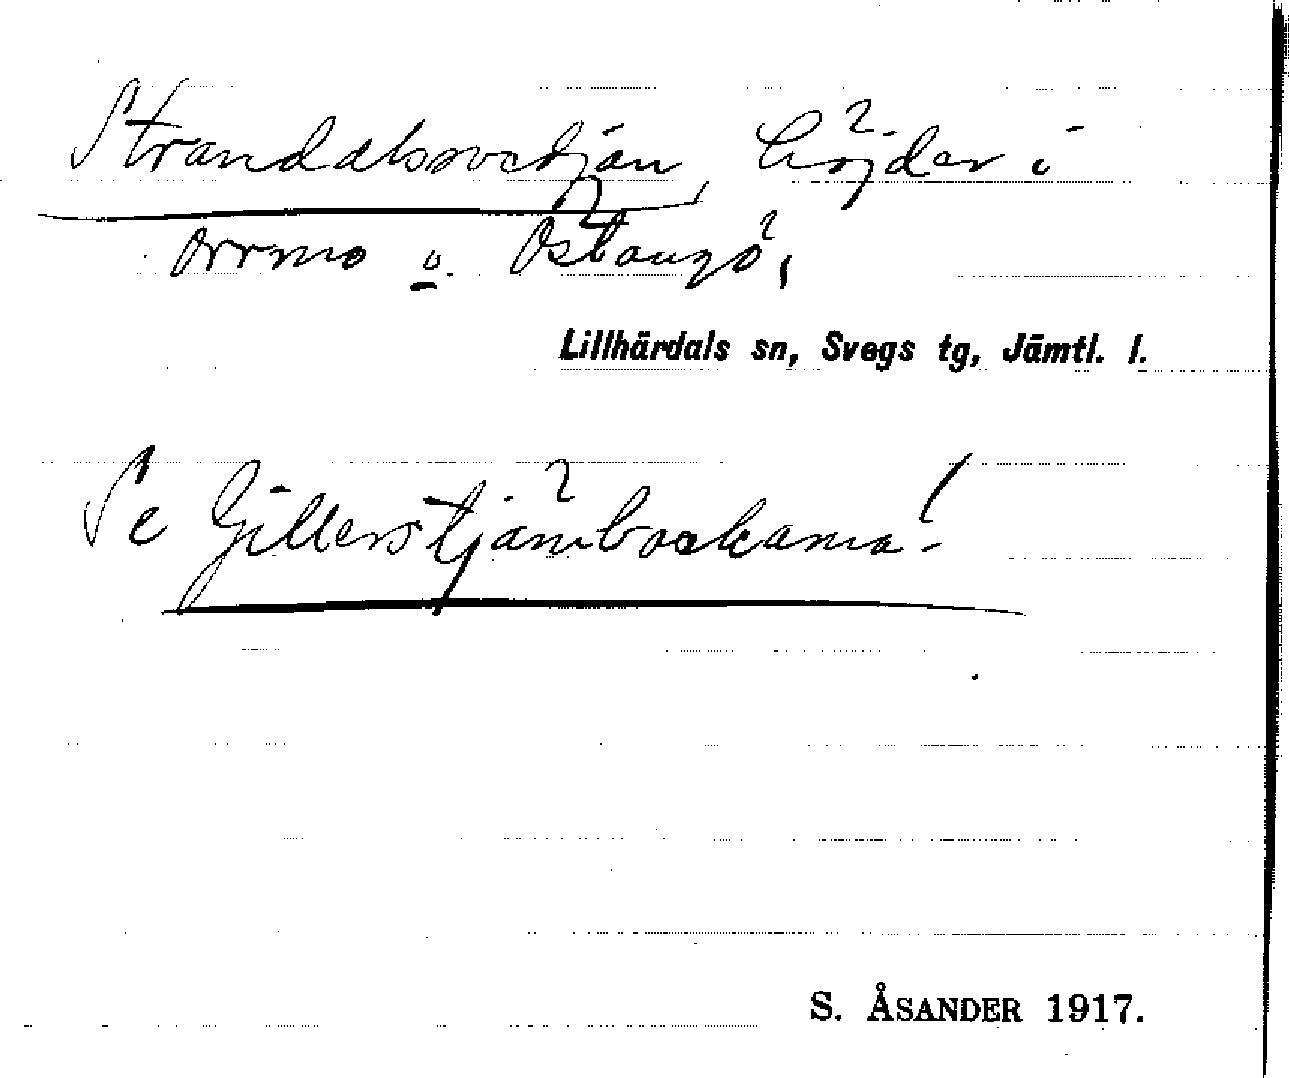 Strandalsovetjän, höjder i
Orrmo o. Östansjö,
Lillhärdals sn, Svegs tg, Jämtl. l.
Se Gillerstjärnbackarna!
S. ÅSANDER 1917.